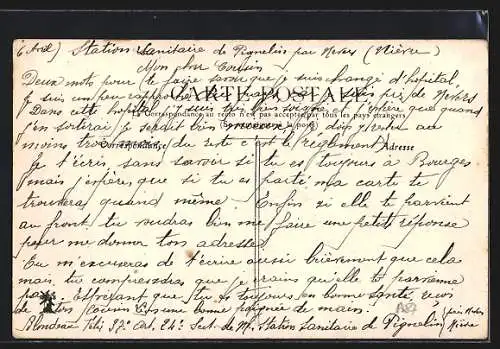 Station Sanitaire de Pignelin par Nevers (Nièvre)
Mon cher Cousin
Deux mots pour te faire savoir que je suis changé d'hôpital,
je suis un peu rapproché près de Nevers
CARTE POSTALE
Dans cette hôpital j'y suis très bien soigné et j'espère que quand
La Correspondance au recto n'est pas acceptée par tous les pays étrangers
j'en sortirai je serait bien je dois rester au
moins trois du reste c'est le règlement
Correspondance Adresse
Je t'écris sans savoir si tu es toujours à Bourges
mais j'espère que si tu es parti ma carte te
trouvera quand même. Enfin si elle te parvient
au front tu voudras bien me faire une petite réponse
pour me donner ton adresse.
Tu m'excuseras de t'écrire aussi brièvement que cela
mais tu comprendras que je crains qu'elle te parvienne
pas. Espérant que tu es toujours en bonne santé, reçois
de ton Cousin une bonne poignée de main.
Blondeau 32e Art. 24e Station sanitaire de Pignelin près Nevers
Nièvre